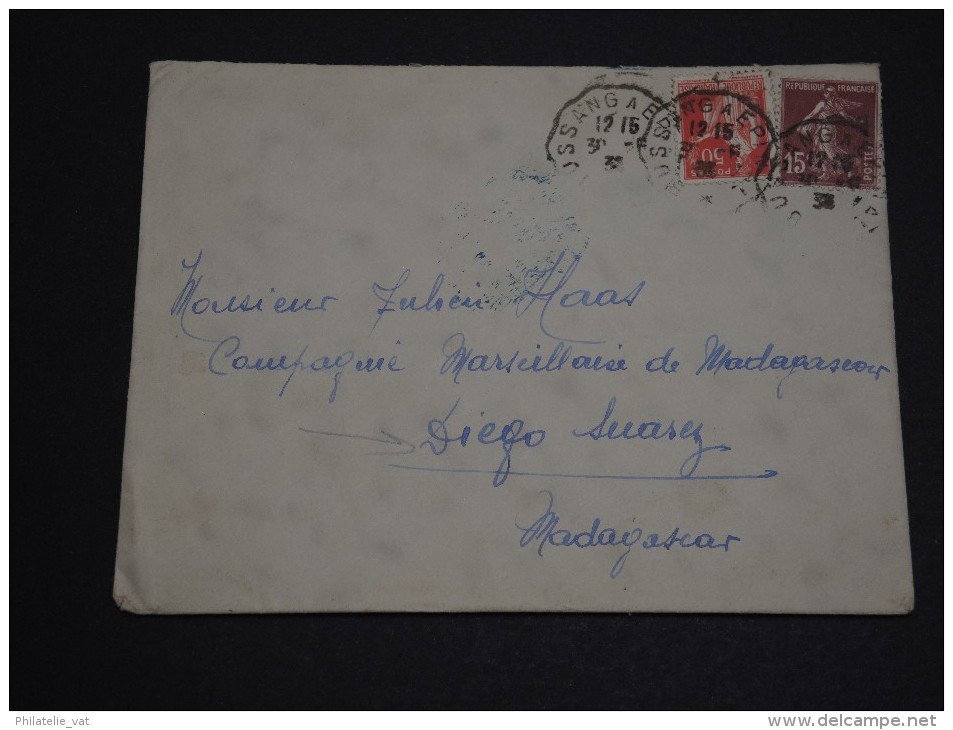 REPUBLIQUE FRANÇAISE
15
POSTES
50
POSTES
OSSANGAE
12 15
30
38
12 15
38
38
Monsieur Julien Haas
Compagnie Marseillaise de Madagascar
Diego Suarez
Madagascar
Philatelie_vat
www.delcampe.net